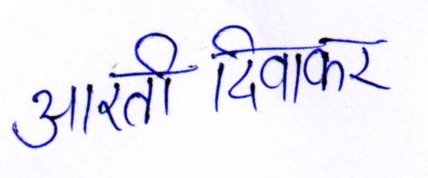 आरती दिवाकर